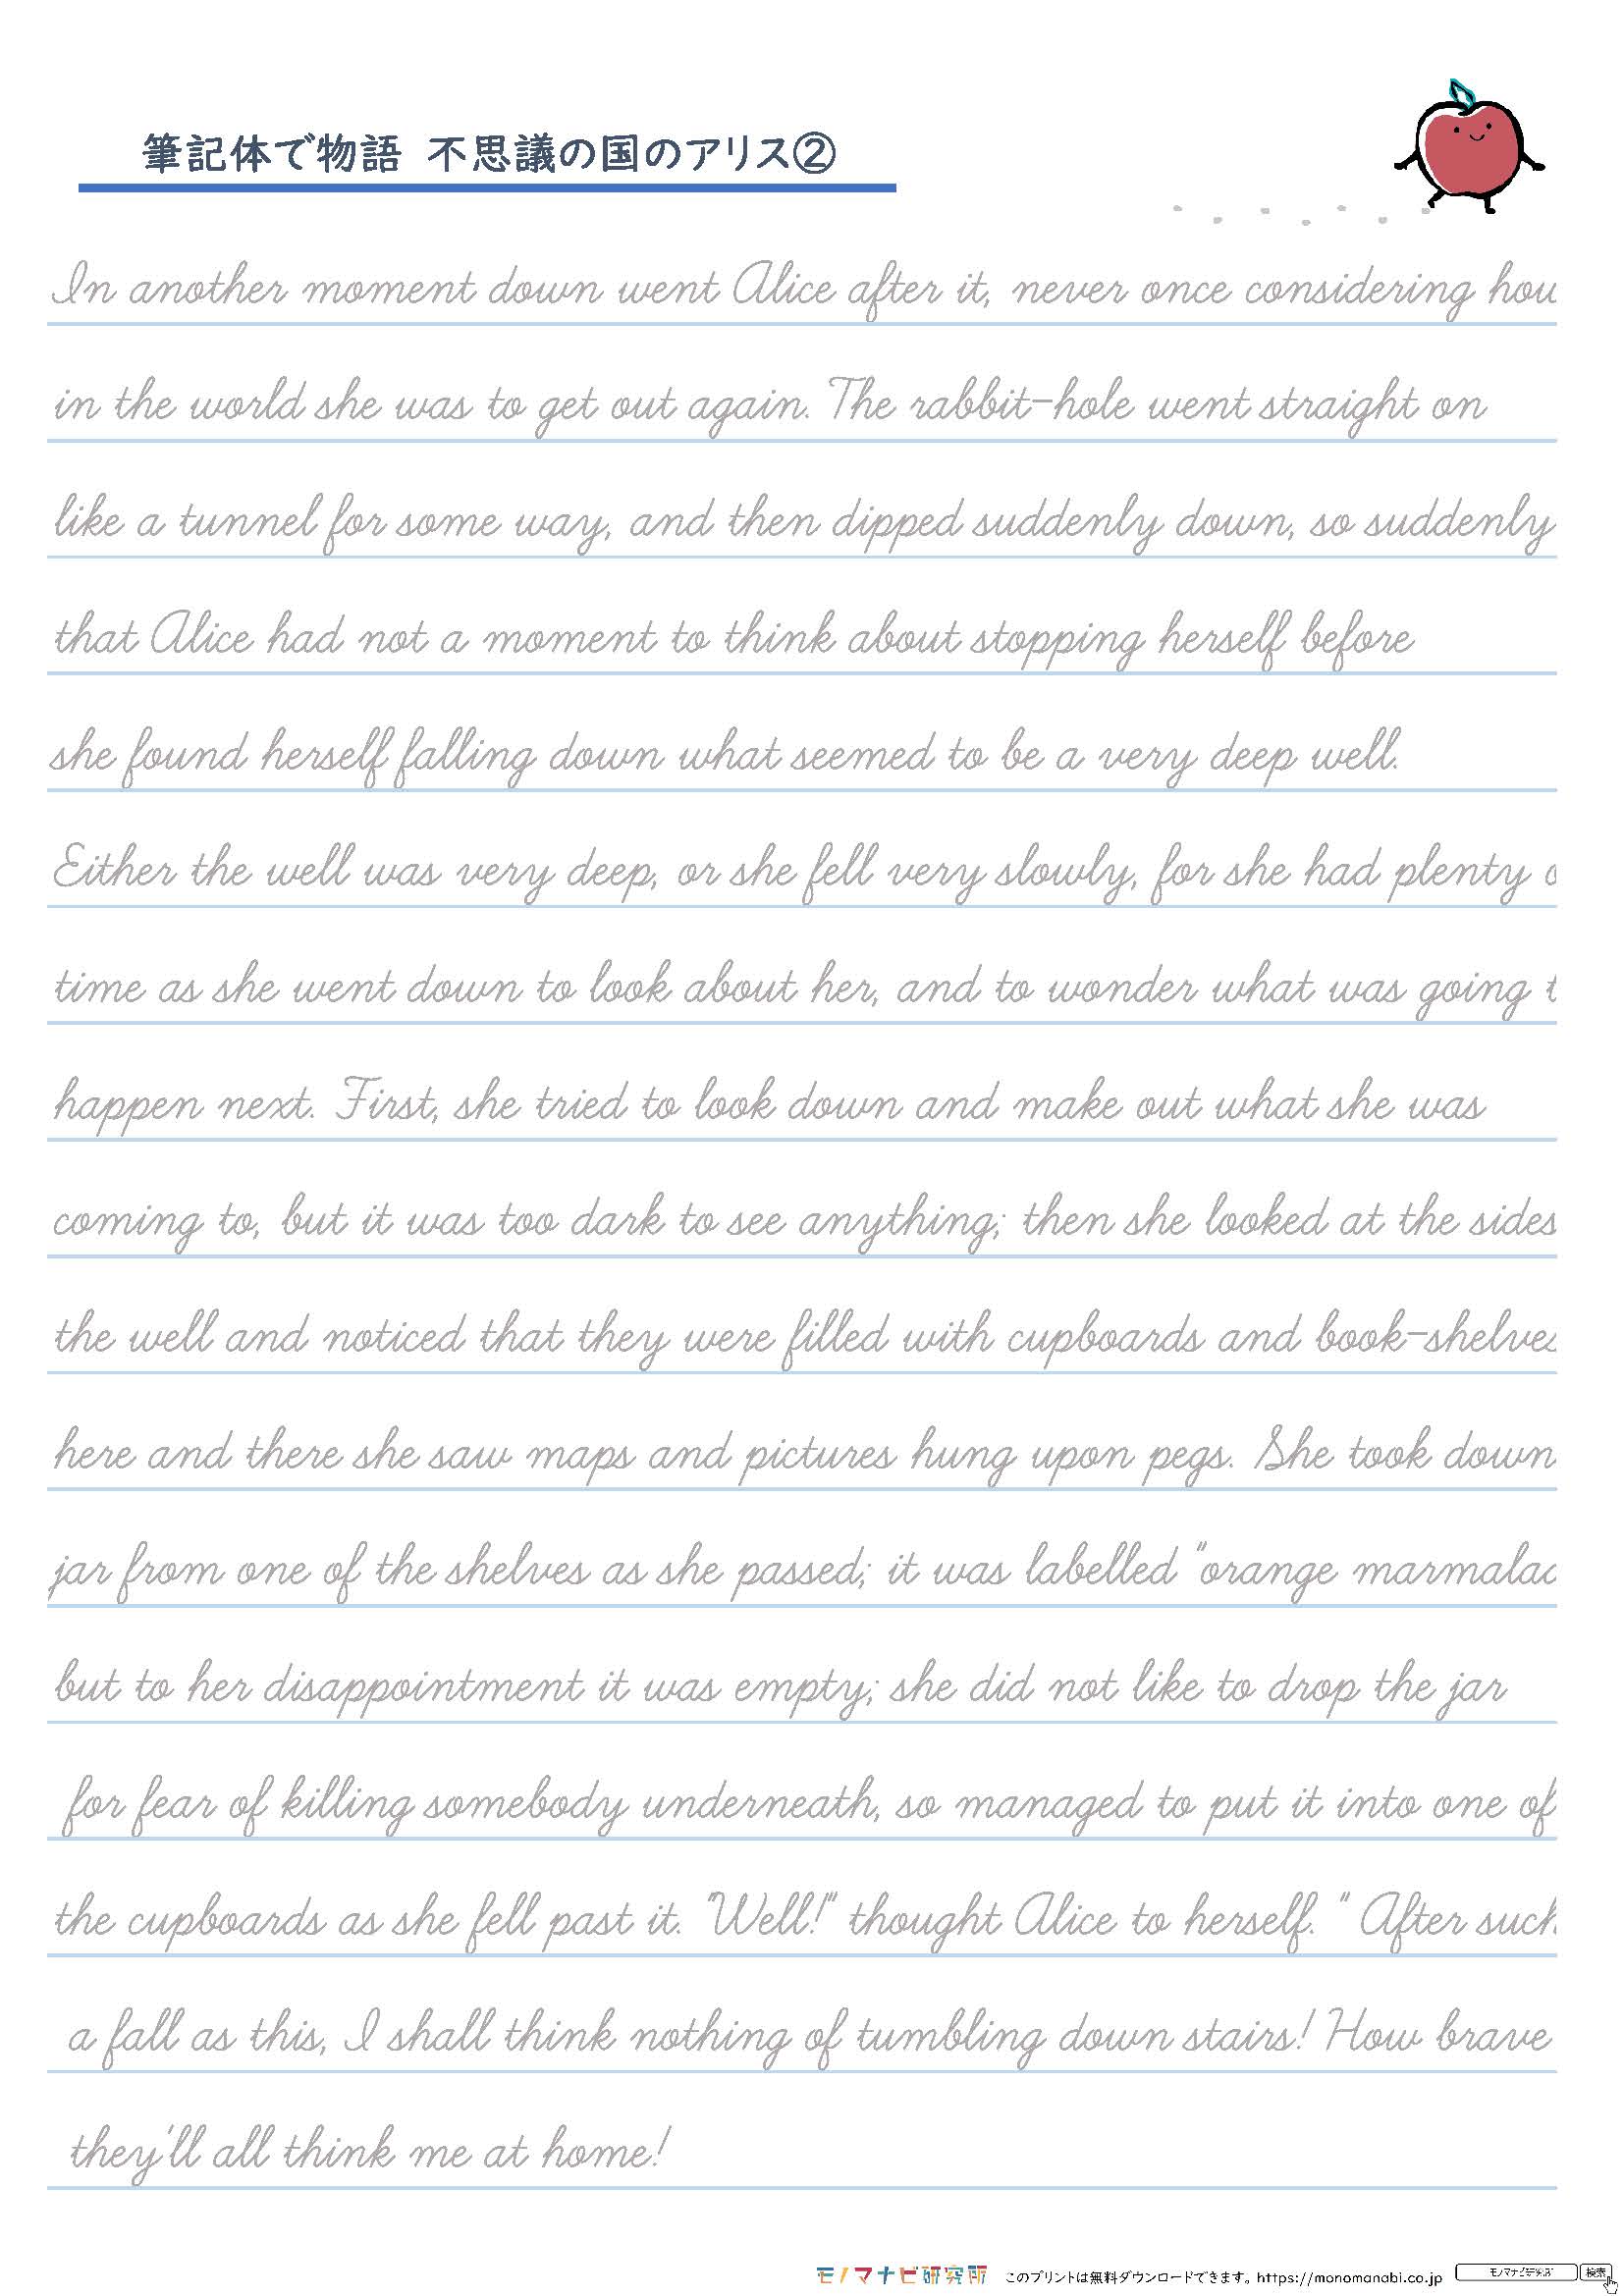 筆記体で物語 不思議の国のアリス②
In another moment down went Alice after it, never once considering
in the world she was to get out again. The rabbit-hole went straight on
like a tunnel for some way, and then dipped suddenly down, so suddenly
that Alice had not a moment to think about stopping herself before
she found herself falling down what seemed to be a very deep well.
Either the well was very deep, or she fell very slowly, for she had plenty
time as she went down to look about her, and to wonder what was going
happen next. First, she tried to look down and make out what she was
coming to, but it was too dark to see anything; then she looked at the sides
the well and noticed that they were filled with cupboards and book-shelves
here and there she saw maps and pictures hung upon pegs. She took down
jar from one of the shelves as she passed; it was labelled "orange
but to her disappointment it was empty; she did not like to drop the jar
for fear of killing somebody underneath, so managed to put it into one of
the cupboards as she fell past it. "Well!" thought Alice to herself. " After such
a fall as this, I shall think nothing of tumbling down stairs! How brave
they'll all think me at home!
モノマナビ研究所 このプリントは無料ダウンロードできます。https://monomanabi.co.jp モノマナビ研究所 検索